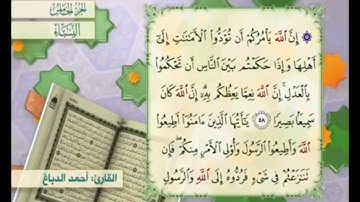 الجزء الخامس
النساء
إِنَّ اللَّهَ يَأْمُرُكُمْ أَن تُؤَدُّوا الْأَمَانَاتِ إِلَىٰ
أَهْلِهَا وَإِذَا حَكَمْتُم بَيْنَ النَّاسِ أَن تَحْكُمُوا
بِالْعَدْلِ إِنَّ اللَّهَ نِعِمَّا يَعِظُكُم بِهِ إِنَّ اللَّهَ كَانَ
سَمِيعًا بَصِيرًا ٥٨ يَا أَيُّهَا الَّذِينَ آمَنُوا أَطِيعُوا
اللَّهَ وَأَطِيعُوا الرَّسُولَ وَأُولِي الْأَمْرِ مِنكُمْ فَإِن
تَنَازَعْتُمْ فِي شَيْءٍ فَرُدُّوهُ إِلَى اللَّهِ وَالرَّسُولِ
القارئ: أحمد الدباغ